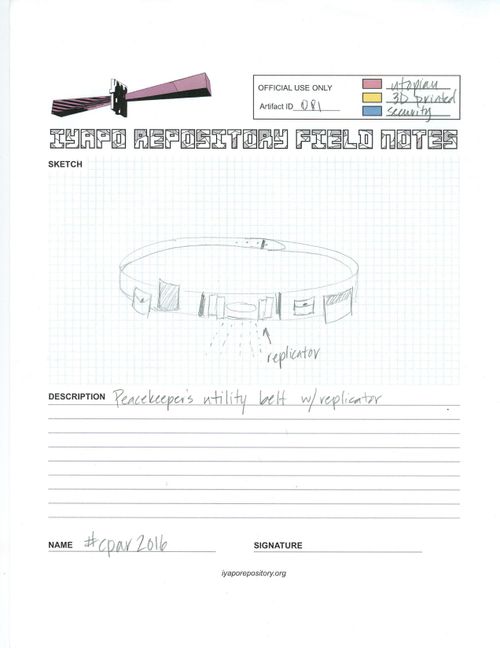 OFFICIAL USE ONLY
Artifact ID 081
utopian
3D printed
security
IYAPO REPOSITORY FIELD NOTES
SKETCH
replicator
DESCRIPTION Peacekeeper's utility belt w/replicator
NAME #cpar2016 SIGNATURE
iyaporepository.org